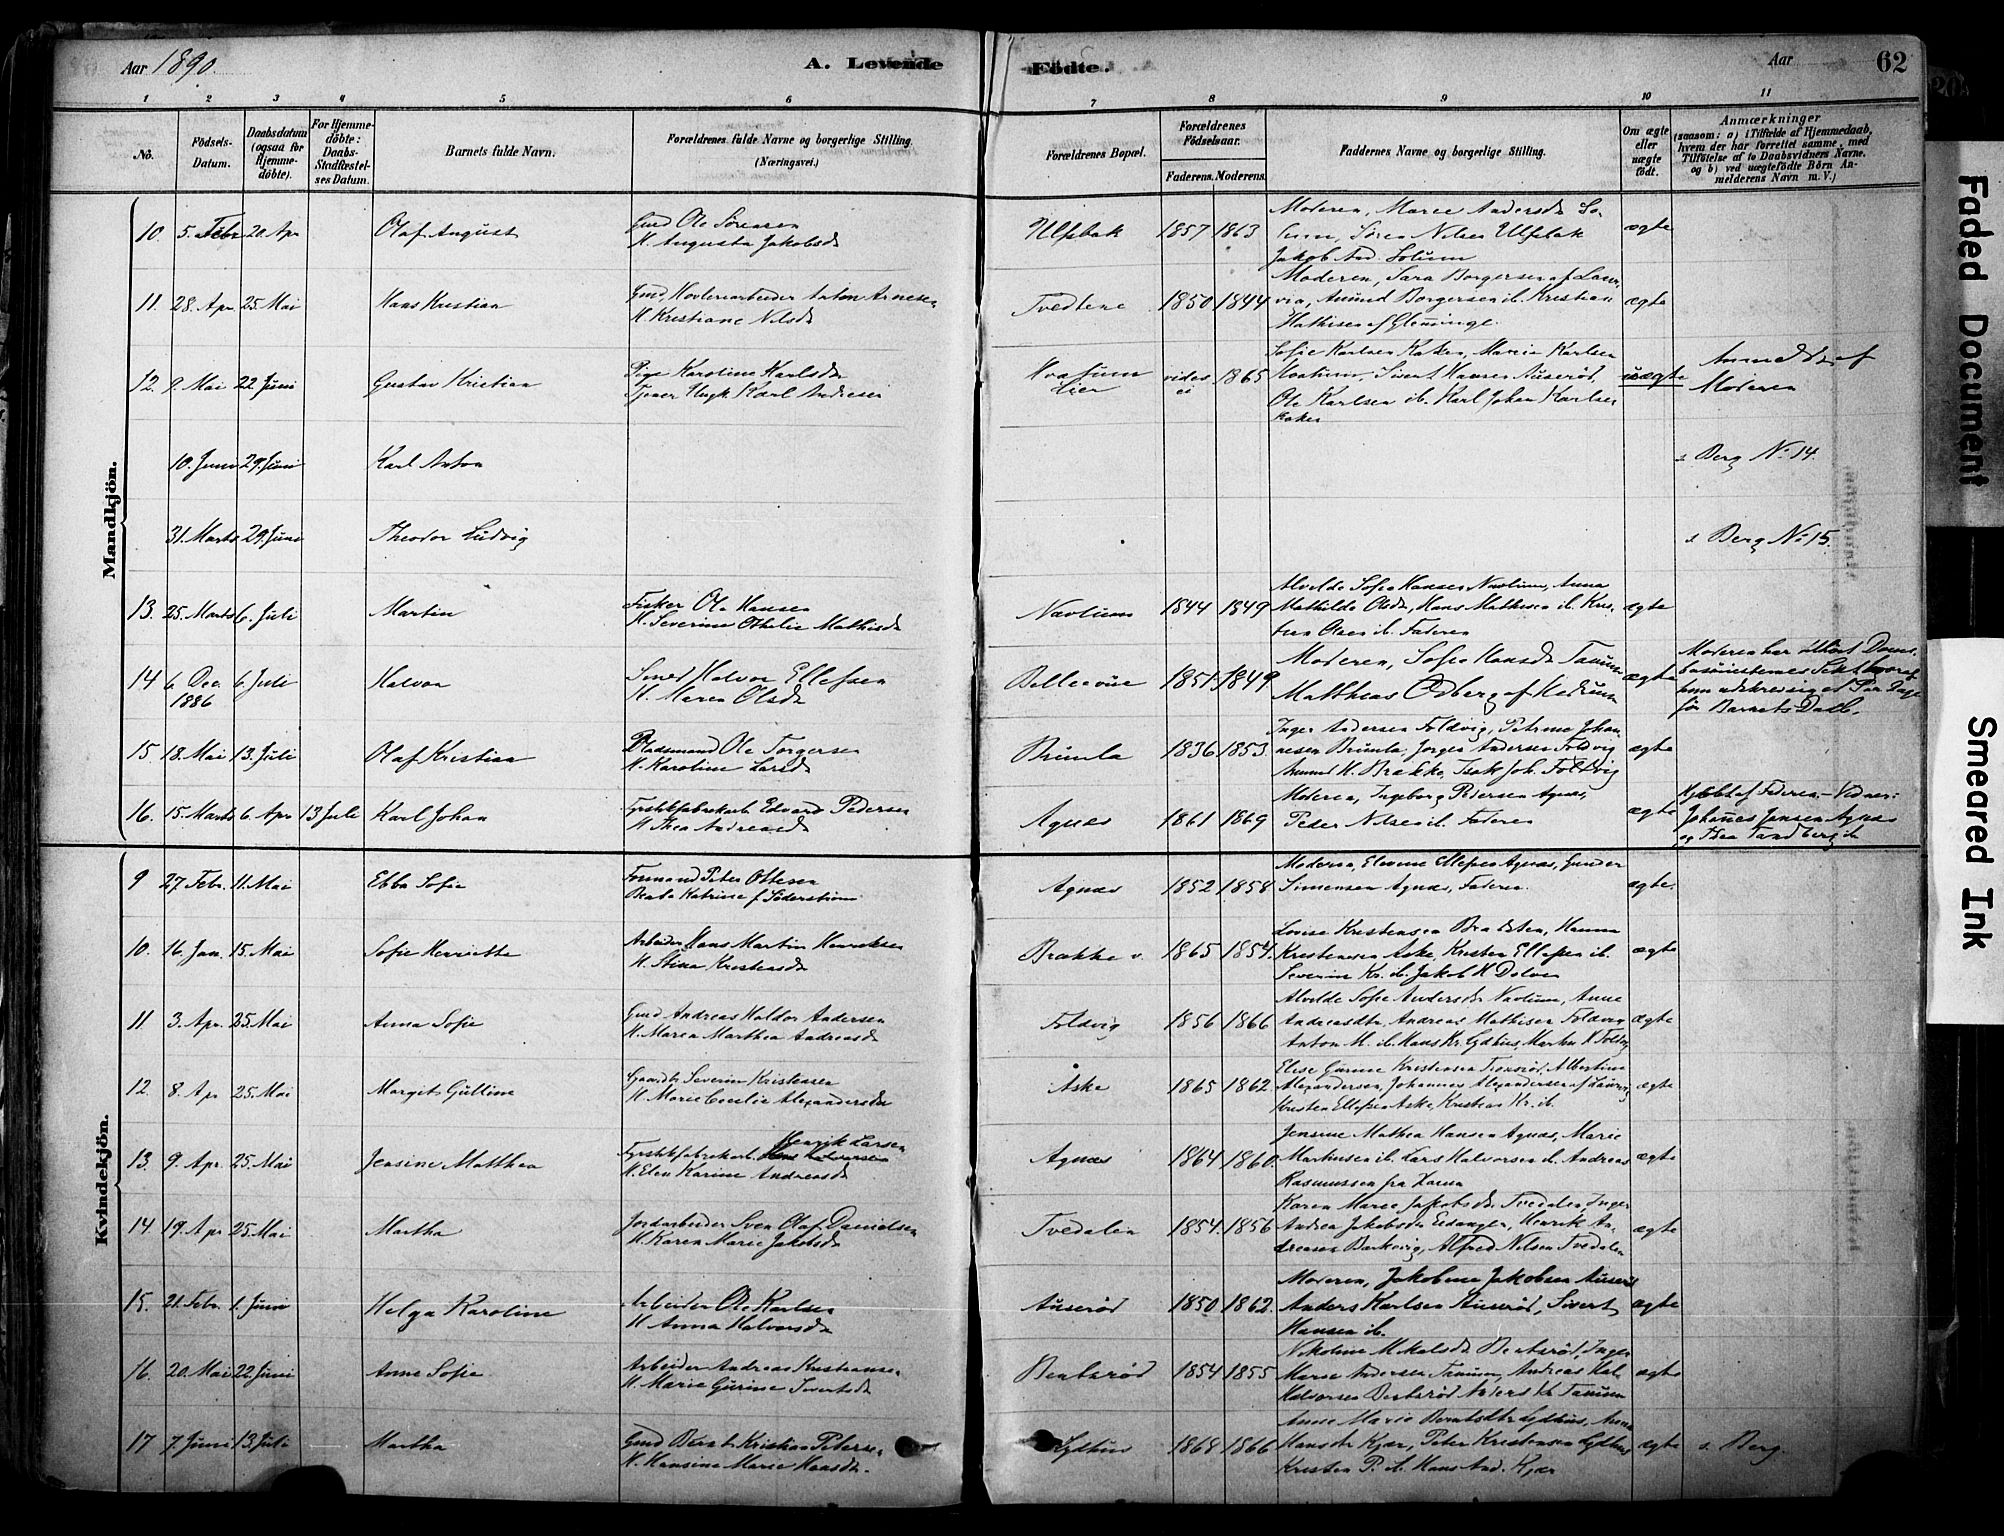 Aar 1890.
A. Levende
Födte.
Aar
62
1 2 3 4 5 6 7 8 9 10 11
No.
Födsels-Datum.
Daabsdatum (ogsaa for Hjemme-döbte).
For Hjemme-döbte: Daabs-Stadfæstel-ses Datum.
Barnets fulde Navn.
Forældrenes fulde Navne og borgerlige Stilling.
(Næringsvei.)
Forældrenes Bopæl.
Forældrenes Födselsaar.
Faderens. Moderens.
Faddernes Navne og borgerlige Stilling.
Om ægte eller uægte födt.
Anmærkninger
(saasom: a) i Tilfælde af Hjemmedaab,
hvem der har forrettet samme, med
Tilföielse af to Daabsvidners Navne,
og b) ved uægtefödte Börn An-
melderens Navn m. V.)
Mandkjön.
10. 5. Febr 20. Apr Olaf August
Gmd Ole Sörensen
H. Augusta Jakobsd
Ulfsbak 1857 1863
Moderen, Maree Andersd So-
lum, Sören Nilsen Ulfsbak
Jakob And. Solum
ægte
11. 28. Apr. 25. Mai Hans Kristian
Gmd, Hovleriarbeider Anton Arnesen
H. Kristiane Nilsd
Tvedtene 1850 1844
Moderen, Sara Borgersen af Laur-
via, Amund Borgersen ib. Kristian
Mathisen af Glemminge.
ægte
12. 9. Mai 22. Juni Gustav Kristian
Pige Karoline Karlsd
Tjener Ungk Karl Andresen
Hvatum
Lier
vides ei 1865
Sofie Karlsen Kaken, Marie Karlsen
Hvatum, Sivert Hansen Auseröd,
Ole Karlsen ib. Karl Johan Karlsen
Kaken
uægte
Anmeldt af
Moderen
10. Juni 29. Juni Karl Anton
s Berg No 14.
31. Marts 29. Juni Theodor Ludvig
s Berg No 15.
13. 25. Marts 6. Juli Martin
Fisker Ole Hansen
H. Severine Othelie Mathisd
Navlum 1844 1849
Alvelde Sofie Hansen Navlum, Anna
Mathilde Olsd, Hans Mathisen ib. Kris-
tian Olsen ib. Faderen
ægte
14 6. Dec. 1886 6. Juli Halvor
Smed Halvor Ellefsen
H. Maren Olsd
Bellevue 1851 1849
Moderen, Sofie Hansd Tanum
Matthias Ödberg af Hedrum
ægte
Moderen har tilhört Doms-
för Barnets Daab.
15 18. Mai 13. Juli Olaf Kristian
Pladsmand Ole Torgersen
H. Karoline Larsd
Brumla 1836 1853.
Inger Andersen Foldvig, Petrine Johan-
nesen Brumla, Jörgen Andersen Foldvig
Amund H. Brække, Isak Joh. Foldvig
ægte
16. 15. Marts 6. Apr 13 Juli Karl Johan
Fyrstikfabrikarb. Edvard Pedersen
H. Thea Andreasd
Agnæs 1861 1869
Moderen, Ingeborg Pedersen Agnæs,
Peder Nilsen ib. Faderen
ægte
Hjdbt af Faderen - Vidner:
Johannes Jansen Agnæs
og Thea Tandberg ib
Kvindekjön.
9 27 Febr. 11. Mai Ebba Sofie
Formand Peter Ottesen
Beata Katrine f. Söderström
Agnæs 1852 1858
Moderen, Elevine Ellefsen Agnæs, Gunder
Simensen Agnæs, Faderen.
ægte.
10. 16. Jan. 15. Mai Sofie Henriette
Arbeider Hans Martin Henriksen
H. Stina Kristensd
Brække v. 1865 1854.
Lovise Kristensen Bratsten, Hanna
Kristensen Aske, Kristen Ellefsen ib.
Severin Kr. ib. Jakob H Dolven
ægte
11 3. Apr. 25. Mai Anna Sofie
Gmd Andreas Haldor Andersen
H. Maren Marthea Andreasd
Foldvig 1856 1866
Alvelde Sofie Andersd Navlum, Anne
Andreasdtr, Andreas Mathisen Foldvig
Anton M. ib. Hans Kr. Lydhus, Martin H Foldvig
ægte
12 8. Apr 25. Mai Margit Gulline
Gaardbr Severin Kristensen
H. Marie Cecilie Alexandersdtr
Aske 1865 1862.
Elise Gurine Kristensen Tronsröd, Albertine
Alexandersen, Johannes Alexandersen af Laurvig
Kristen Ellefsen Aske, Kristian Kr. ib.
ægte
13. 9. Apr. 25. Mai Jensine Matthea
Fyrstikfabrikarb. Henrik Larsen
H. Elen Karine Andreasd
Agnæs 1864 1860.
Jensine Mathea Hansen Agnæs, Marie
Markusen ib. Lars Halvorsen ib. Andreas
Rasmussen fra
ægte
14 19. Apr 25. Mai Martha
Jordarbeider Sven Olaf Danielsen
H. Karen Marie Jakobsd
Tvedalen 1854. 1856
Karen Marie Jakobsd Tvedalen, Inger
Andrea Jakobsdtr Eidanger, Henrik An-
dreasen Barkevig, Alfred Nilsen Tvedalen
ægte
15. 21. Febr. 1. Juni Helga Karoline
Arbeider Ole Karlsen
H Anna Halvorsd
Auseröd 1850 1862.
Moderen, Jakobine Jakobsen Auseröd
Anders Karlsen Auseröd, Sivert
Hansen ib.
ægte
16 20. Mai 22. Juni Anne Sofie
Arbeider Andreas Kristiansen
H. Marie Gurine Sivertsd
Bentsröd 1854 1855
Nikoline Mikalsd Bentsröd, Inger
Marie Andersen Tanum, Andreas Hal-
Halvorsen Bentsröd Anders Kr Tanum
ægte
17 7. Juni 13. Juli Martha
Gmd Bernt Kristian Petersen
H. Hansine Marie Hansdtr.
Lydhus 1868 1866
Anne Marie Berntsdtr Lydhus, Anna
Hansdtr Kjær, Peter Kristensen Lydhus
Kristen P. ib Hans And. Kjær
ægte
s. Berg.
Faded Document
Smeared Ink